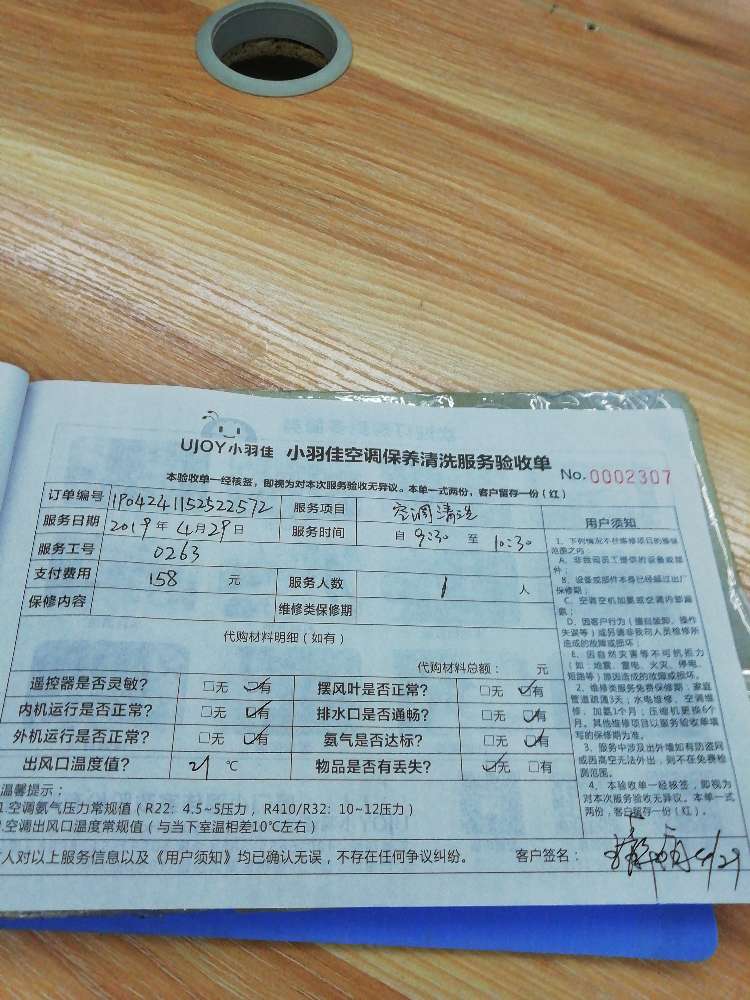 UJOY小羽佳 小羽佳空调保养清洗服务验收单
No.0002307
本验收单一经核签，即视为对本次服务验收无异议。本单一式两份，客户留存一份（红）
订单编号 1904241152522572 服务项目 空调清洗
服务日期 2019年4月29日 服务时间 自 9:30 至 10:30
服务工号 0263
支付费用 158 元 服务人数 1 人
保修内容 维修类保修期
代购材料明细（如有）
代购材料总额： 元
遥控器是否灵敏？ □无 ☑有 摆风叶是否正常？ □无 ☑有
内机运行是否正常？ □无 ☑有 排水口是否通畅？ □无 ☑有
外机运行是否正常？ □无 ☑有 氨气是否达标？ □无 ☑有
出风口温度值？ 21 ℃ 物品是否有丢失？ ☑无 □有
温馨提示：
1.空调氨气压力常规值（R22：4.5~5压力，R410/R32：10~12压力）
.空调出风口温度常规值（与当下室温相差10℃左右）
人对以上服务信息以及《用户须知》均已确认无误，不存在任何争议纠纷。 客户签名： 4/29
用户须知
1、下列情况不在维修项目的维保
范围之内
A、非我司员工提供的设备或部
件；
B、设备或部件本身已经超过出厂
保修期；
C、空调空机加氨或空调内部漏
氨；
D、因客户行为（擅自装卸、操作
失误等）或另请非我司人员检修所
造成的故障或损坏；
E、因自然灾害等不可抗拒力
（如：地震、雷电、火灾、停电、
短路等）原因造成的故障或损坏。
2、维修类服务免费保修期：家庭
管道疏通3天；水电维修、空调维
修、加氨1个月；压缩机更换6个
月。其他维修项目以服务验收单填
写的保修期为准。
3、服务中涉及出外墙如有防盗网
或因高空无法外出，则不在免费检
测范围。
4、本验收单一经核签，即视为
对本次服务验收无异议。本单一式
两份，客户留存一份（红）。